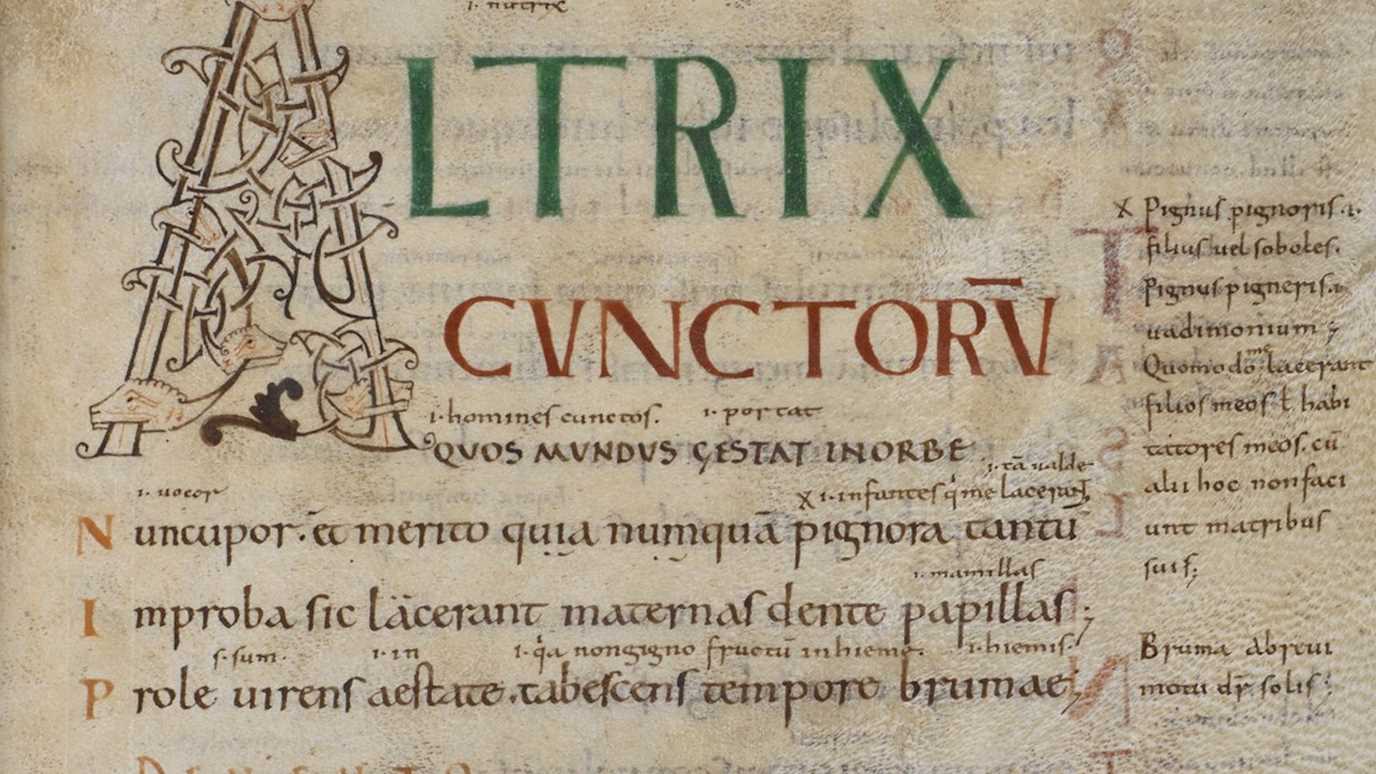 .i. nutrix
ALTRIX
CUNCTORU̅
.i. homines cunctos. .i. portat
QUOS MUNDUS GESTAT IN ORBE
.i. uocor
x .i. infantes q́ me lacerant
.i. tā ualde
Nuncupor. et merito quia numquā pignora tantū
.i. mamillas
Improba sic lacerant maternas dente papillas;
s. sum. .i. in .i. q́a non gigno fructū in hieme. .i. hiemis.
Prole uirens aestate. tabescens tempore brumae;
x Pignus pignoris .i.
filius uel soboles.
Pignus pigneris .i.
uadimonium;
Quomodo me lacerant
filios meos ł habi
tatores meos. cū
alii hoc non faci
unt matribus
suis;
Bruma a breui
motu dr̄ solis;